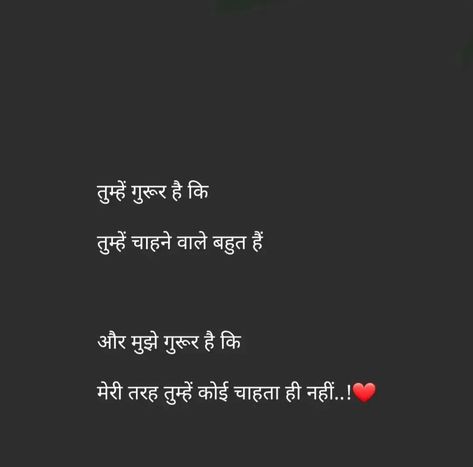 तुम्हें गुरूर है कि
तुम्हें चाहने वाले बहुत हैं
और मुझे गुरूर है कि
मेरी तरह तुम्हें कोई चाहता ही नहीं..!❤️